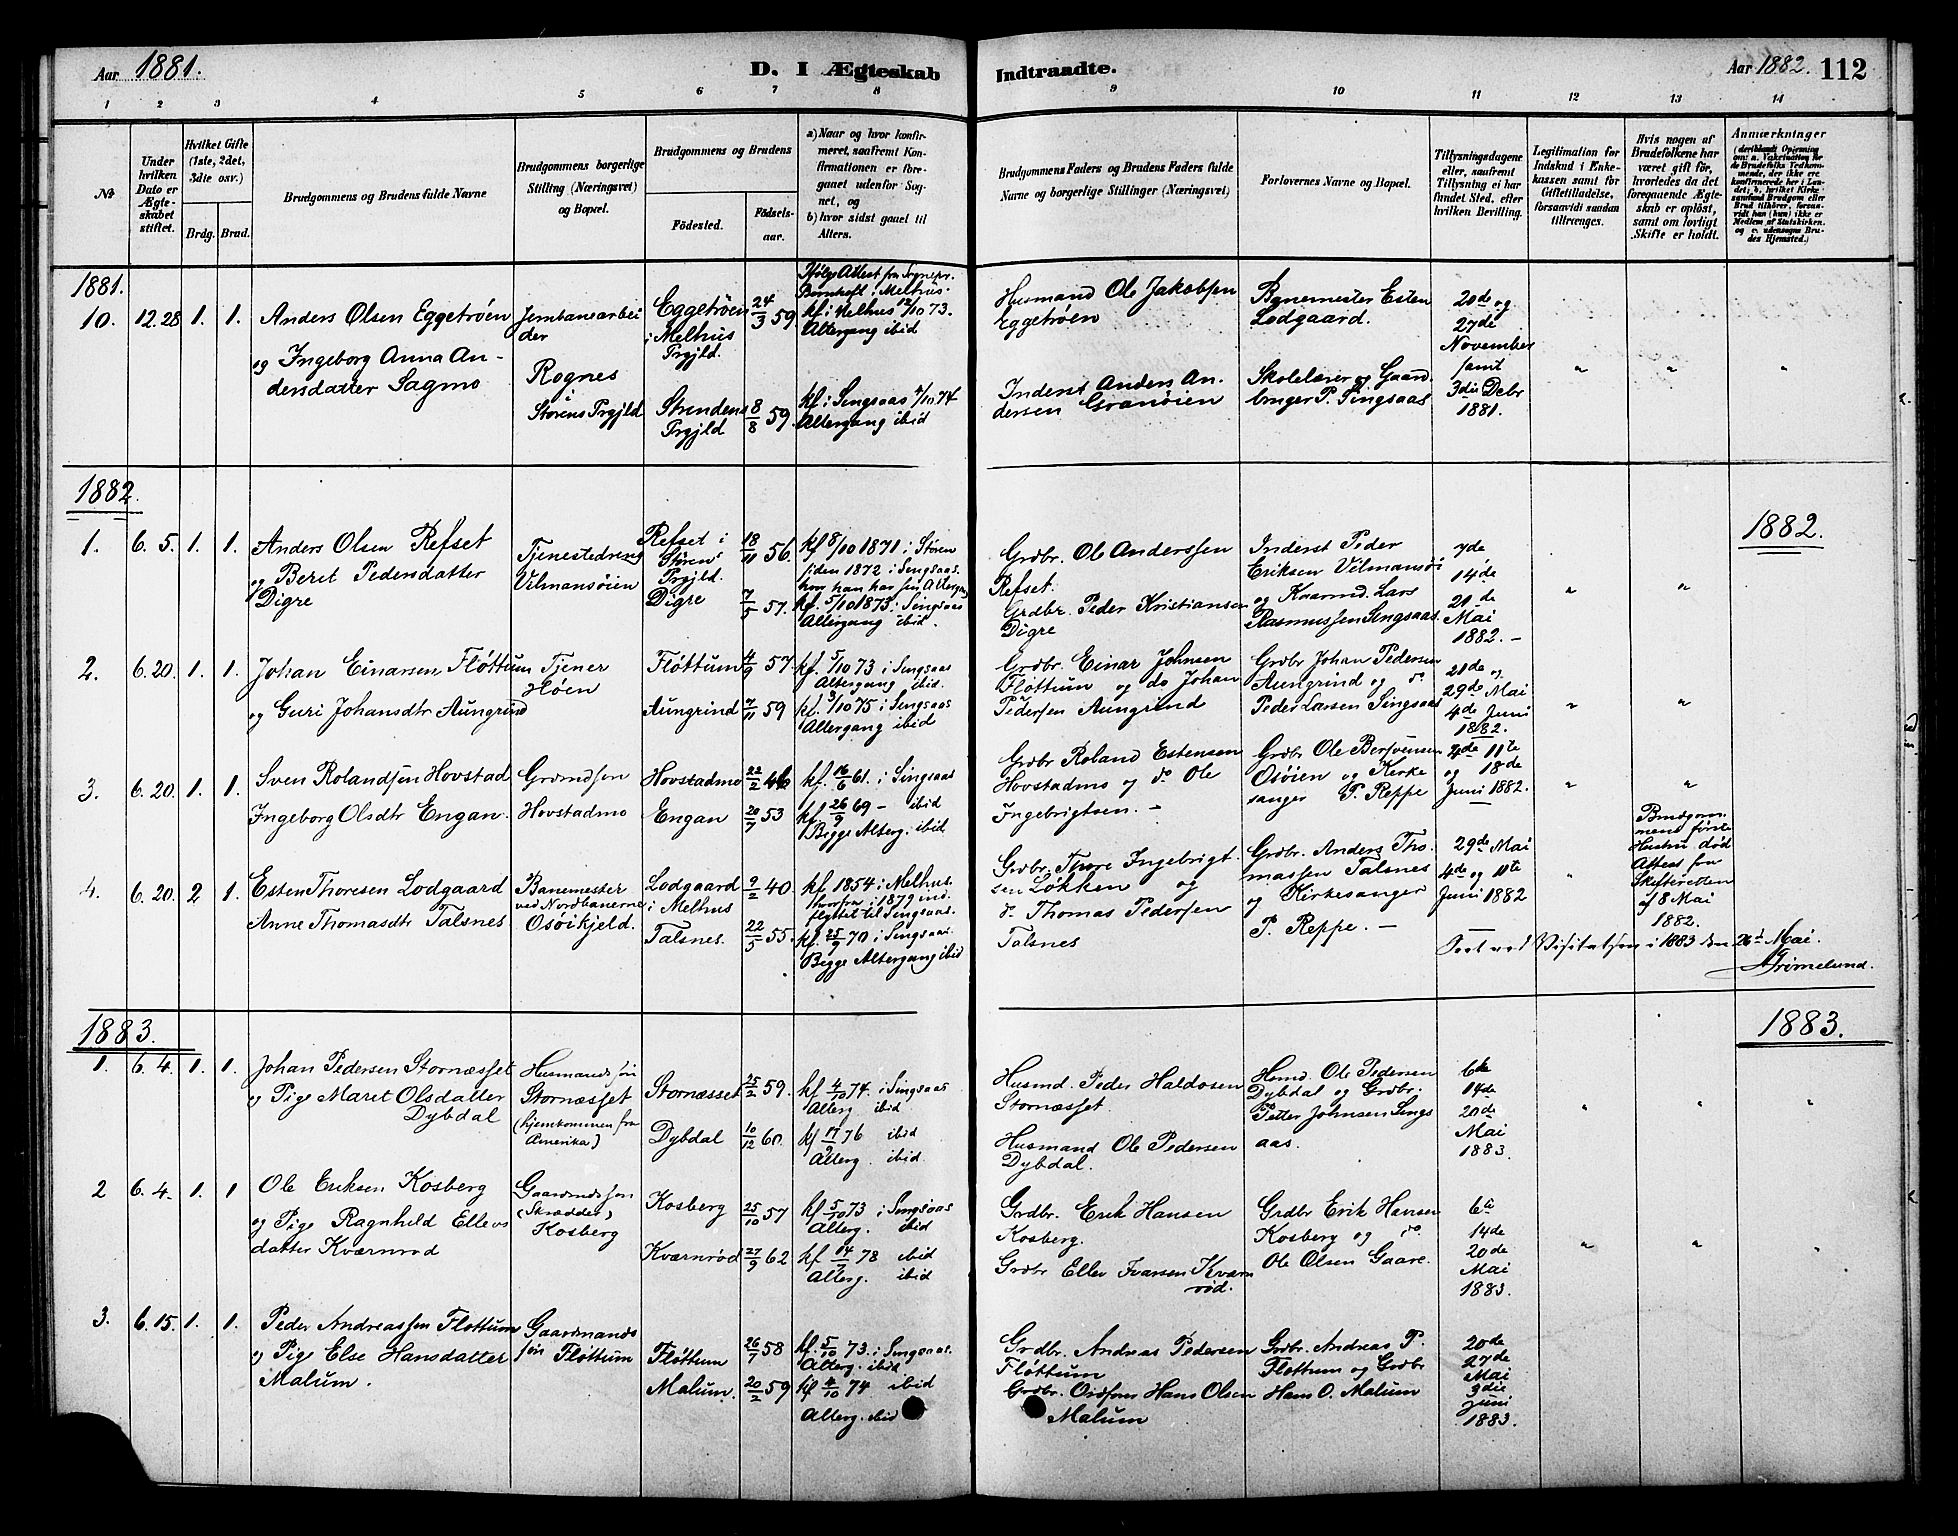 Aar 1881.
D. I Ægteskab Indtraadte.
Aar 1882. 112
1 2 3 4 5 6 7 8 9 10 11 12 13 14
№
Under hvilken Dato er Ægteskabet stiftet.
Hvilket Gifte (1ste, 2det, 3die osv.)
Brdg. Brud.
Brudgommens og Brudens fulde Navne
Brudgommens borgerlige Stilling (Næringsvei) og Bopæl.
Brudgommens og Brudens
Födested.
Födselsaar.
a) Naar og hvor konfirmeret, saafremt Konfirmationen er foregaaet udenfor Sognet, og
b) hvor sidst gaaet til Alters.
Brudgommens Faders og Brudens Faders fulde Navne og borgerlige Stillinger (Næringsvei)
Forlovernes Navne og Bopæl.
Tillysningsdagene eller, saafremt Tillysning ei har fundet Sted, efter hvilken Bevilling.
Legitimation for Indskud i Enkekassen samt for Giftetilladelse, forsaavidt saadan tiltrænges.
Hvis nogen af Brudefolkene har været gift før, hvorledes da det foregaaende Ægteskab er opløst, samt om lovligt Skifte er holdt.
Anmærkninger
1881.
10. 12.28 1. 1.
Anders Olsen Eggetröen
og Ingeborg Anna Andersdatter Sagmo
Jernbanearbeider
Rognes
Störens Prgjld
Eggetröen i Melhus Prgjld.
Strindens Prgjld
24/3 59
8/8 59.
Ifölge Attest fra Sognepr. i Melhus.
kf. i Melhus 12/10 73.
Altergang ibid
kf. i Singsaas 4/10 74
Altergang ibid
Husmand Ole Jakobsen
Eggetröen
Inderst Anders Andersen Granöien
Banemester Esten
Lodgaard.
Skolelærer og Gaardbruger P. Singsaas
20de og
27de
November
samt
3die Debr
1881.
" " "
1882.
1882.
1. 6. 5. 1. 1.
Anders Olsen Refset
og Berit Pedersdatter
Digre
Tjenestedreng
Vilmansöien
Refset i
Stören
Prgjld.
Digre
18/11 56.
7/5 57.
kf 8/10 1871 i Stören
siden 1872 i Singsaas.
hvor han har sin Altergang
kf. 5/10 1873 i Singsaas
Altergang ibid.
Grdbr. Ole Anderssen
Refset.
Grdbr. Peder Kristiansen
Digre
Inderst Peder
Eriksen Vilmansöi
og Kaarmd. Lars
Rasmussen Singsaas.
7de
14de
21de
Mai
1882. –
" "
2. 6.20. 1. 1.
Johan Einarsen Flöttum
og Guri Johansdtr Aungrind
Tjener
Höen
Flöttum
Aungrind
4/9 57.
7/11 59
kf. 5/10 73 i Singsaas
Altergang ibid.
kf. 3/10 75 i Singsaas
Altergang ibid
Grdbr. Einar Johnsen
Flöttum og do Johan
Pedersen Aungrind
Grdbr Johan Pedersen
Aungrind og do
Peder Larsen Singsaas
21de og
29de Mai
4de Juni
1882.
" "
3. 6.20. 1. 1.
Sven Rolandsen Hovstad
Ingeborg Olsdtr Engan.
Grmdsön
Hovstadmo
Hovstadmo
Engan
22/2 46
20/7 53
kf. 16/6 61. i Singsaas
kf. 26/9 69 – ibid
Begge Alterg. ibid
Grdbr Roland Estensen
Hovstadmo og do Ole
Ingebrigtsen. –
Grdbr Ole Bersvensen
Osöien og Kirke
sanger P. Reppe
4de 11te
og 18de
Juni 1882.
" "
4. 6.20. 2 1.
Esten Thoresen Lodgaard
Anne Thomasdtr Talsnes
Banemester
ved Nordbanerne
Osöikjeld.
Lodgaard
i Melhus
Talsnes.
9/2 40
22/5 55.
kf 1854 i Melhus.
hvorfra i 1879 ind
flyttet til Singsaas.
kf. 25/9 70 i Singsaas.
Begge Altergang ibid
Grdbr. Thore Ingebrigtsen Lökken og
do Thomas Pedersen
Talsnes
Grdbr. Anders Thomassen Talsnes
og Kirkesanger
P. Reppe. –
29de Mai
4de og 11te
Juni 1882
"
Brudgommens förste
Hustru död
Attest fra
Skifteretten
af 18 Mai
1882.
Visitatsen i 1883 den 26de Mai.
1883.
1883.
1. 6. 4. 1. 1.
Johan Pedersen Stornæsset
og Pige Maret Olsdatter
Dybdal
Husmandssön
Stornæsset
(hjemkommen fra
Amerika)
Stornæsset
Dybdal
25/2 59.
10/12 60.
kf 4/10 74 i Singsaas
Alterg ibid
kf 17/9 76 ibid
Alterg. ibid.
Husmd. Peder Haldosen
Stornæsset.
Husmand Ole Pedersen
Dybdal.
Hsmd. Ole Pedersen
Dybdal og Grdbr.
Petter Johnsen Sings
aas.
6te
14de
20de
Mai
1883.
" " "
2 6. 4. 1. 1
Ole Eriksen Kosberg
og Pige Ragnhild Ellevs
datter Kværnröd
Gaardmdssön
(Skrædder)
Kosberg
Kosberg
Kværnröd
25/10 57
27/9 62
kf 5/10 73 i Singsaas
Alterg. ibid
kf 14/7 78 ibid
Alterg. ibid
Grdbr. Erik Hansen
Kosberg.
Grdbr Ellev Ivarsen Kværn
röd.
Grdbr Erik Hansen
Kosberg og do
Ole Olsen Gaare.
6te
14de
20de
Mai
1883.
" " "
3. 6.15. 1. 1.
Peder Andreassen Flottum
og Pige Else Hansdatter
Malum.
Gaardmands
sön Flöttum
Flöttum
Malum.
26/7 58
20/2 59
kf. 5/10 73. i Singsaas.
Alterg. ibid
kf 4/10 74 ibid
Alterg. ibid
Grdbr. Andreas Pedersen
Flöttum
Grdbr. Hans Olsen
Malum
Grdbr. Andreas P.
Flottum og Grdbr
Hans O. Malum
20de
27de
Mai
3die
Juni
1883.